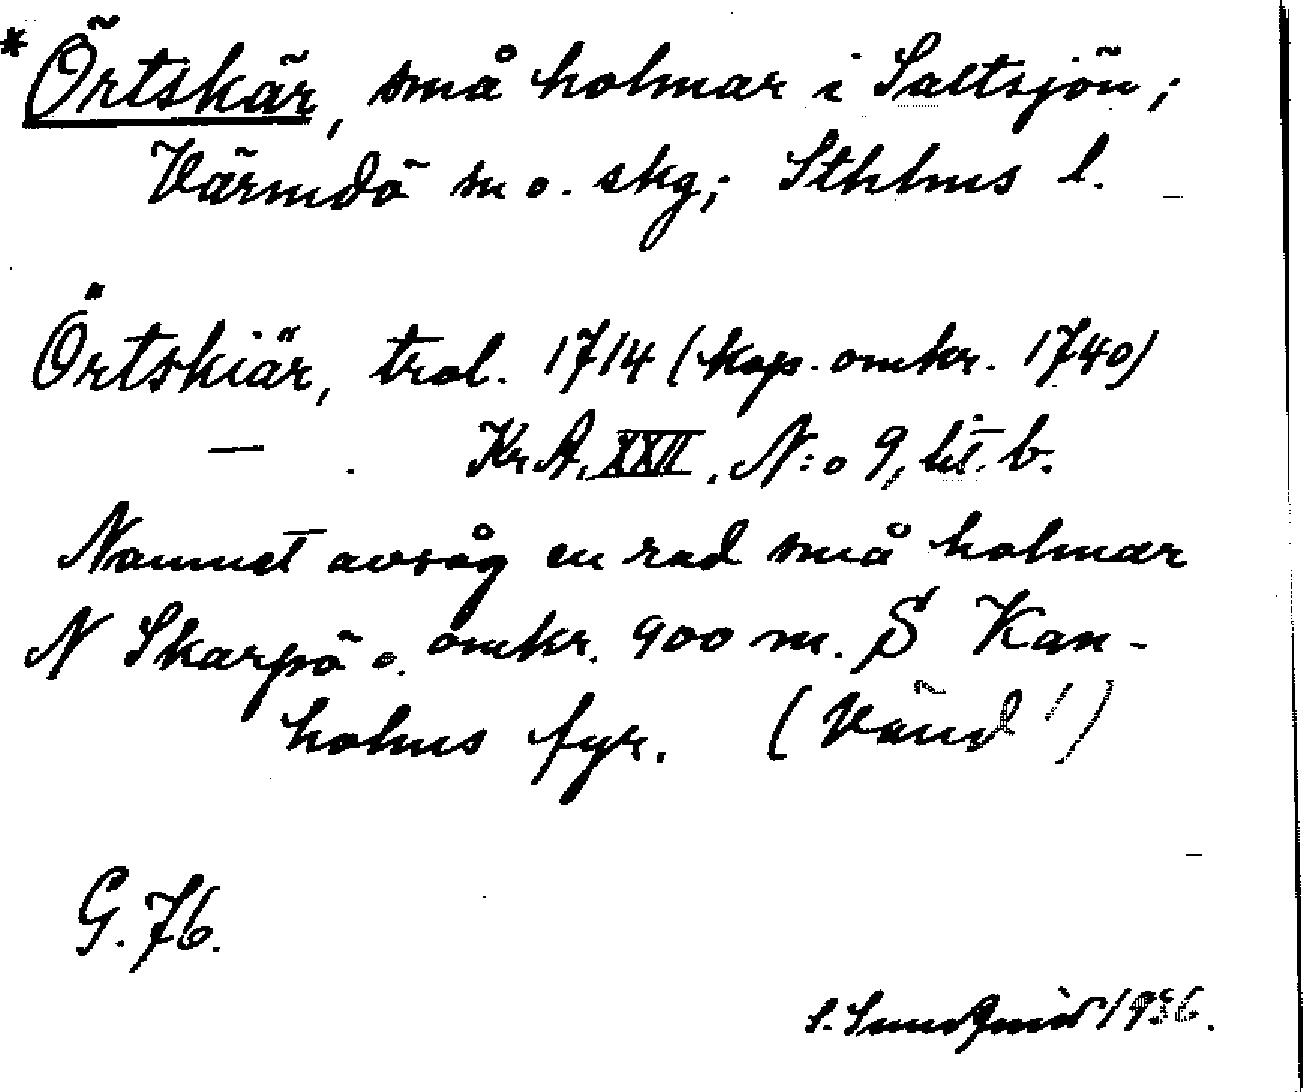 *Örtskär, små holmar i Saltsjön;
Värmdö m o. skg; Sthlms l.
Örtskiär, trol. 1714 (kop. omkr. 1740)
— . Kr. A. XXII. N:o 9, lit. b.
Namnet avsåg en rad små holmar
N Skarpö o. omkr. 900 m. S Kan-
holms fyr. (Vänd!)
G. 76.
1936.